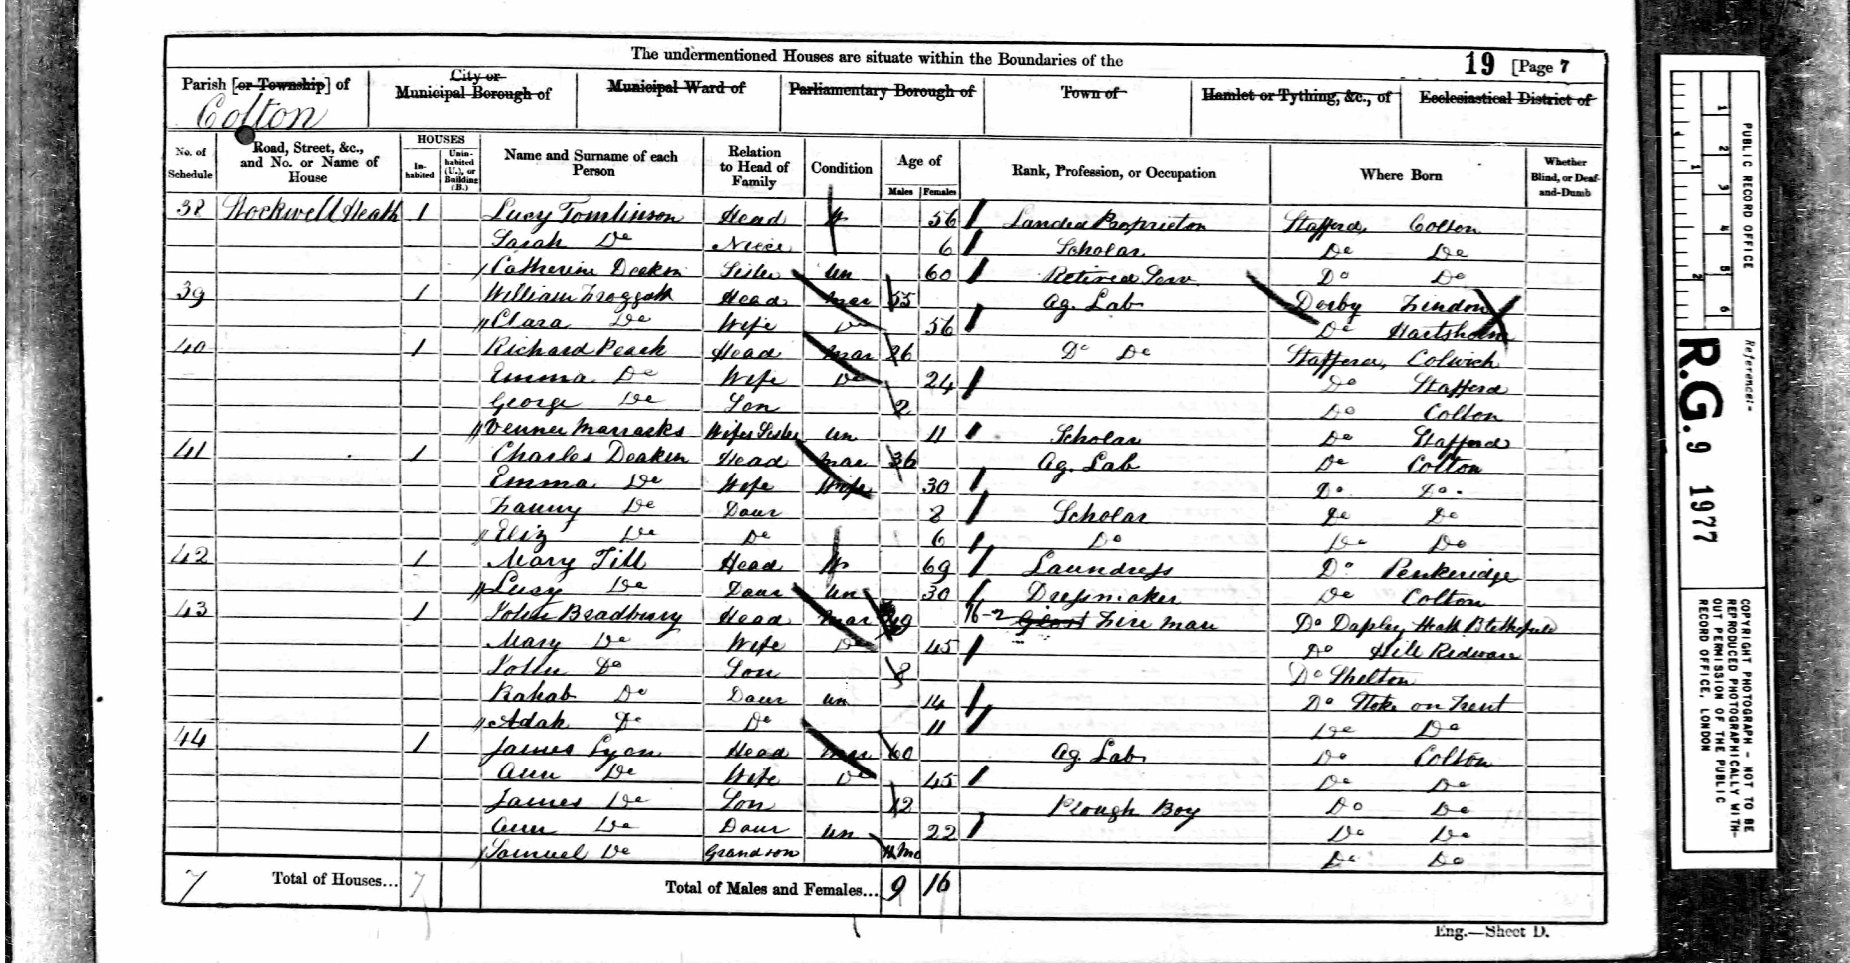 The undermentioned Houses are situate within the Boundaries of the
19 [Page 7
Parish [or Township] of
Colton
City or
Municipal Borough of
Municipal Ward of
Parliamentary Borough of
Town of
Hamlet or Tything, &c., of
Ecclesiastical District of
No. of Schedule
Road, Street, &c., and No. or Name of House
HOUSES
In-habited
Unin-habited (U.), or Building (B.)
Name and Surname of each Person
Relation to Head of Family
Condition
Age of
Males Females
Rank, Profession, or Occupation
Where Born
Whether Blind, or Deaf-and-Dumb
38 Stockwell Heath 1 Lucy Tomlinson Head W 56 Landed Proprietor Stafford, Colton
Sarah Do Niece 6 Scholar Do Do
Catherine Deakin Sister Un 60 Retired Serv Do Do
39 1 William Froggatt Head Mar 55 Ag. Lab Derby
Clara Do Wife Do 56 Do Hartshorn
40 1 Richard Peach Head Mar 26 Do Do Stafford, Colwich
Emma Do Wife Do 24 Do Stafford
George Do Son 2 Do Colton
Wifes Sister Un 11 Scholar Do Stafford
41 1 Charles Deakin Head Mar 36 Ag. Lab Do Colton
Emma Do Wife Wife 30 Do Do
Fanny Do Daur 8 Scholar Do Do
Eliz Do Do 6 Do Do Do
42 1 Mary Till Head W 69 Laundress Do Penkeridge
Lucy Do Daur Un 30 Dressmaker Do Colton
43 1 John Bradbury Head Mar 49 Fire Man Do
Mary Do Wife Do 45 Do Hill Ridware
John Do Son 8 Do Shelton
Rahab Do Daur Un 14 Do Stoke on Trent
Adah Do Do 11 Do Do
44 1 James Lyon Head Mar 60 Ag. Lab Do Colton
Ann Do Wife Do 45 Do Do
James Do Son 12 Plough Boy Do Do
Ann Do Daur Un 22 Do Do
Samuel Do Grandson Do Do
7 Total of Houses... 7 Total of Males and Females... 9 16
Eng.—Sheet D.
PUBLIC RECORD OFFICE
Reference:-
R.G. 9 1977
COPYRIGHT PHOTOGRAPH - NOT TO BE
REPRODUCED PHOTOGRAPHICALLY WITH-
OUT PERMISSION OF THE PUBLIC
RECORD OFFICE, LONDON